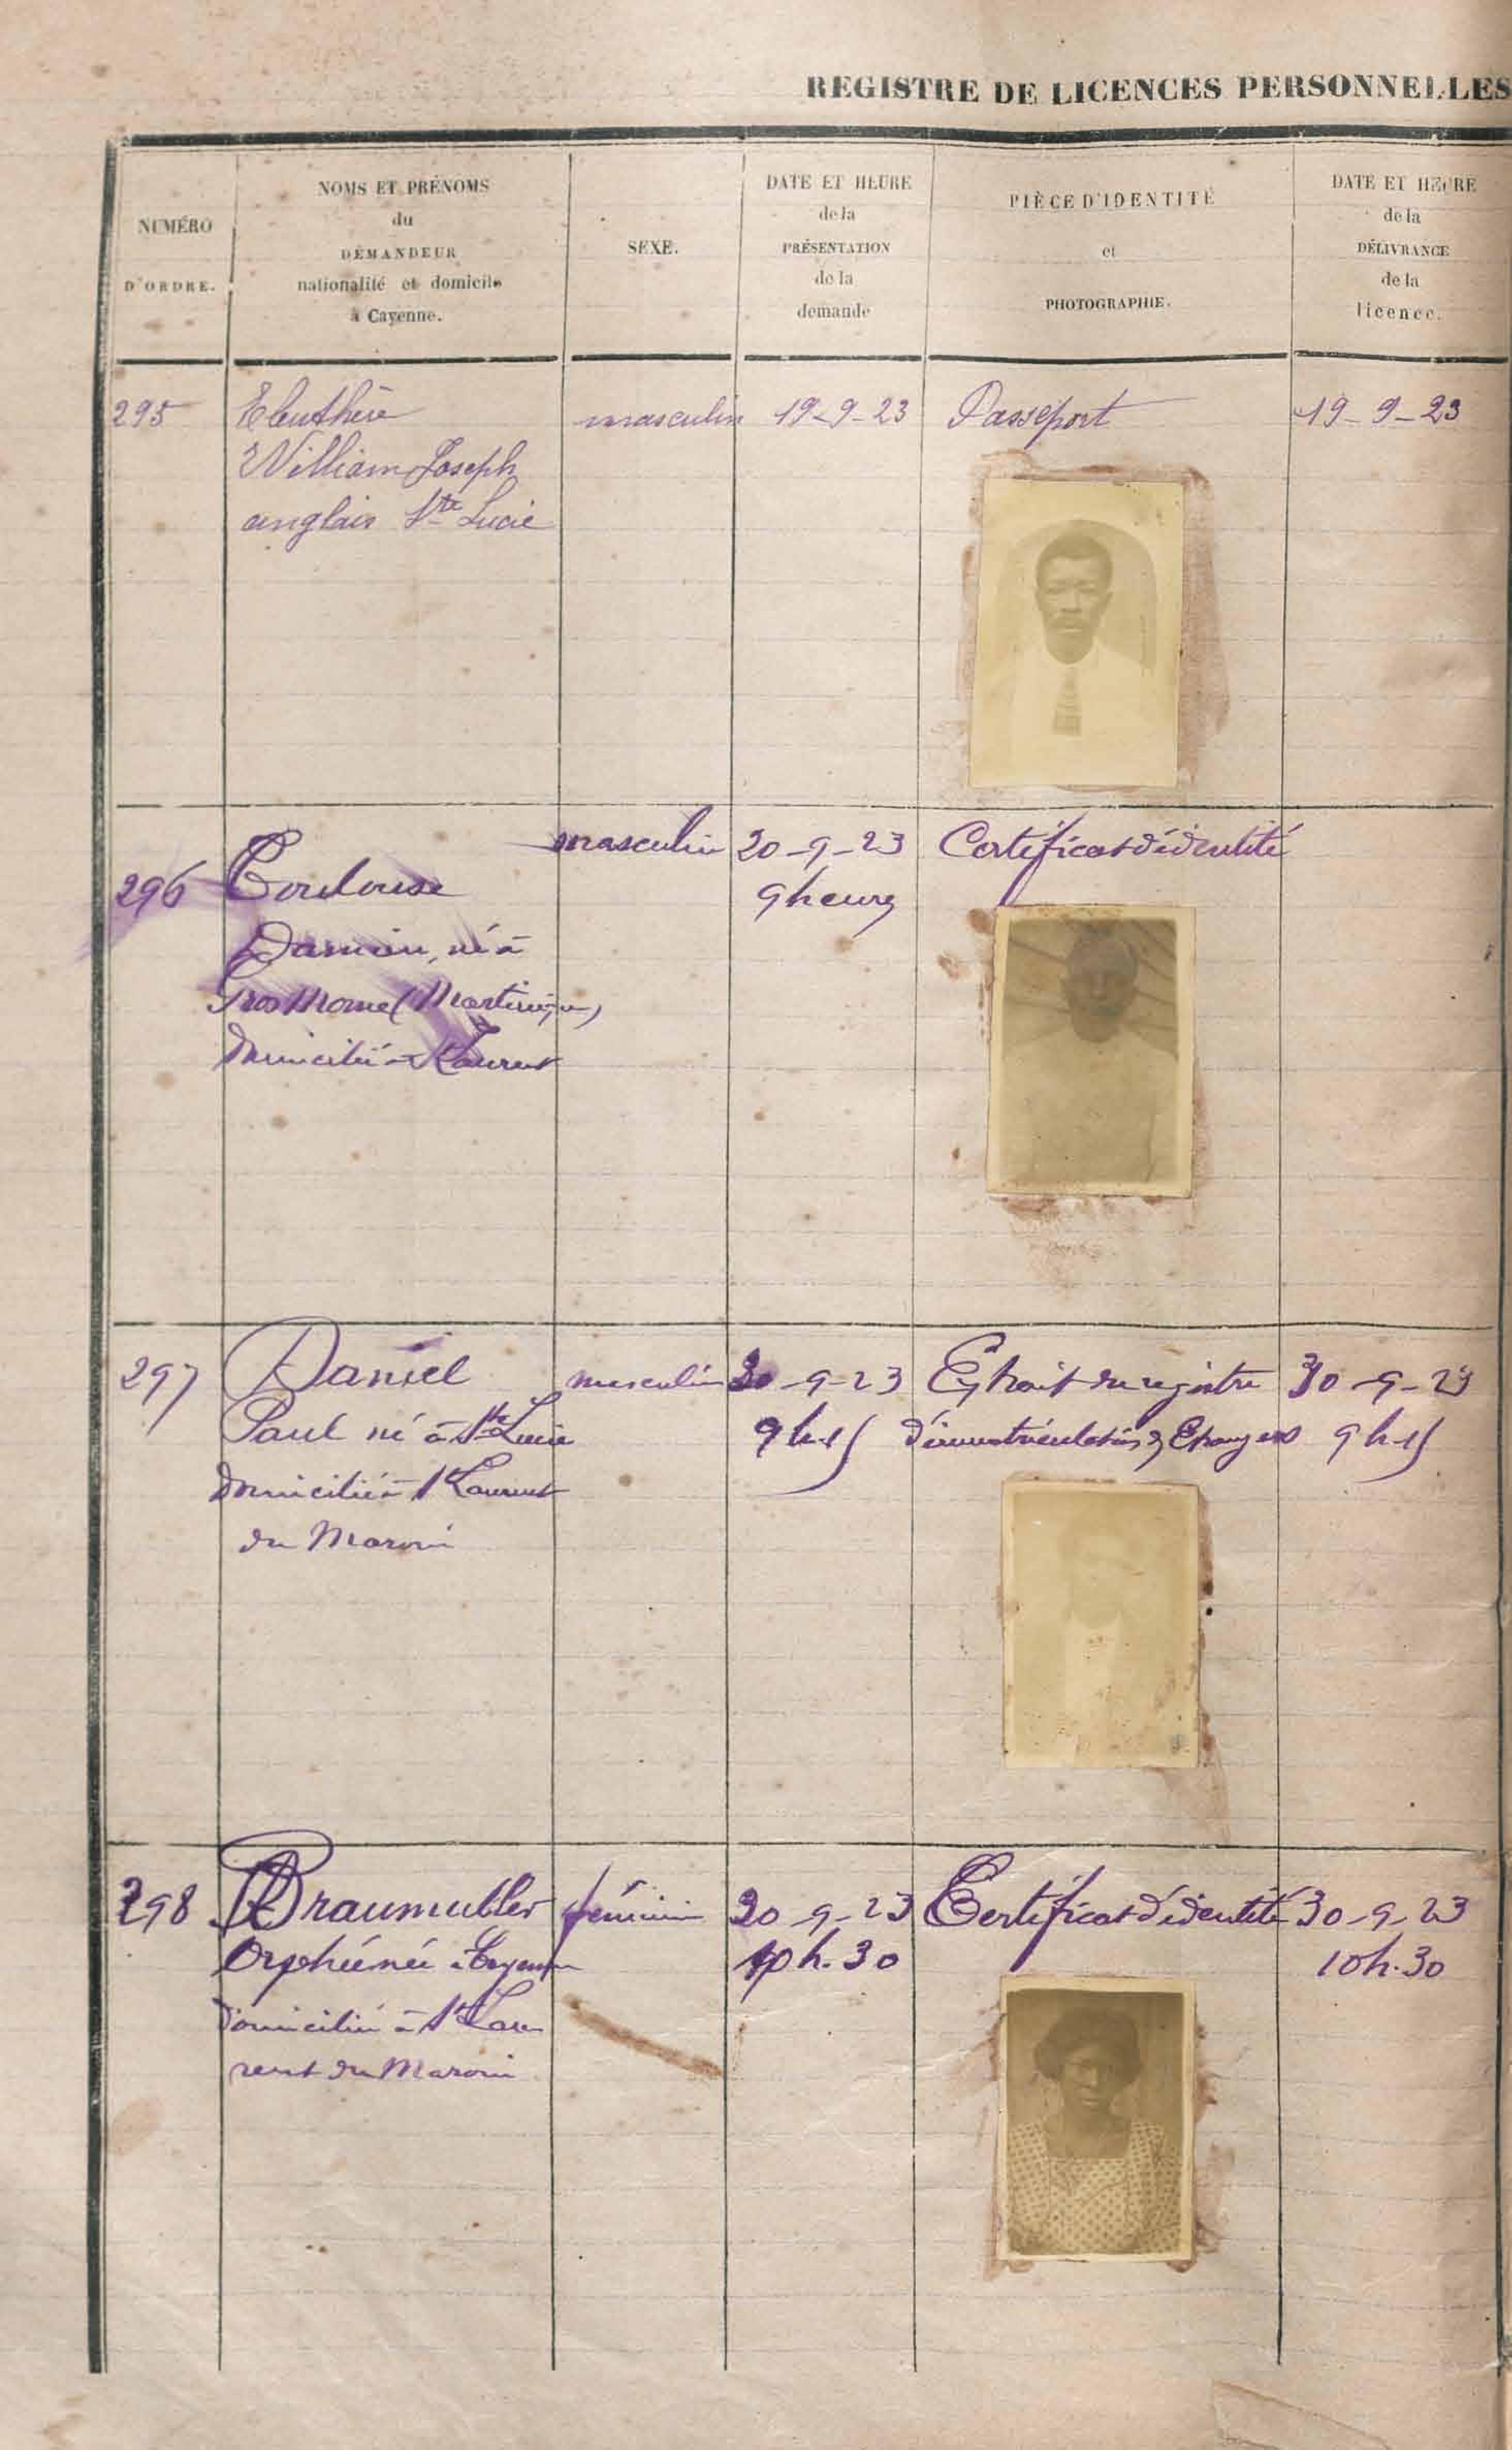 REGISTRE DE LICENCES PERSONNELLES
NUMÉRO
D'ORDRE.
NOMS ET PRÉNOMS
du
DEMANDEUR
nationalité et domicile
à Cayenne.
SEXE.
DATE ET HEURE
de la
PRÉSENTATION
de la
demande
PIÈCE D'IDENTITÉ
et
PHOTOGRAPHIE.
DATE ET HEURE
de la
DÉLIVRANCE
de la
licence.
295
Eleuthère
William Joseph
anglais Ste Lucie
masculin
19-9-23
Passeport
19-9-23
296
Toulouse
Damien, né à
Gros Morne (Martinique)
domicilié à St Laurent
masculin
20-9-23
9 heures
Certificat d'identité
297
Daniel
Paul né à Ste Lucie
domicilié à St Laurent
du Maroni
masculin
-9-23
9h15
Extrait du registre
d'immatriculation Etrangers
30-9-23
9h15
298
Braumuller
née à Cayenne
domiciliée à St Lau
rent du Maroni
féminin
-9-23
10h.30
Certificat d'identité
30-9-23
10h.30